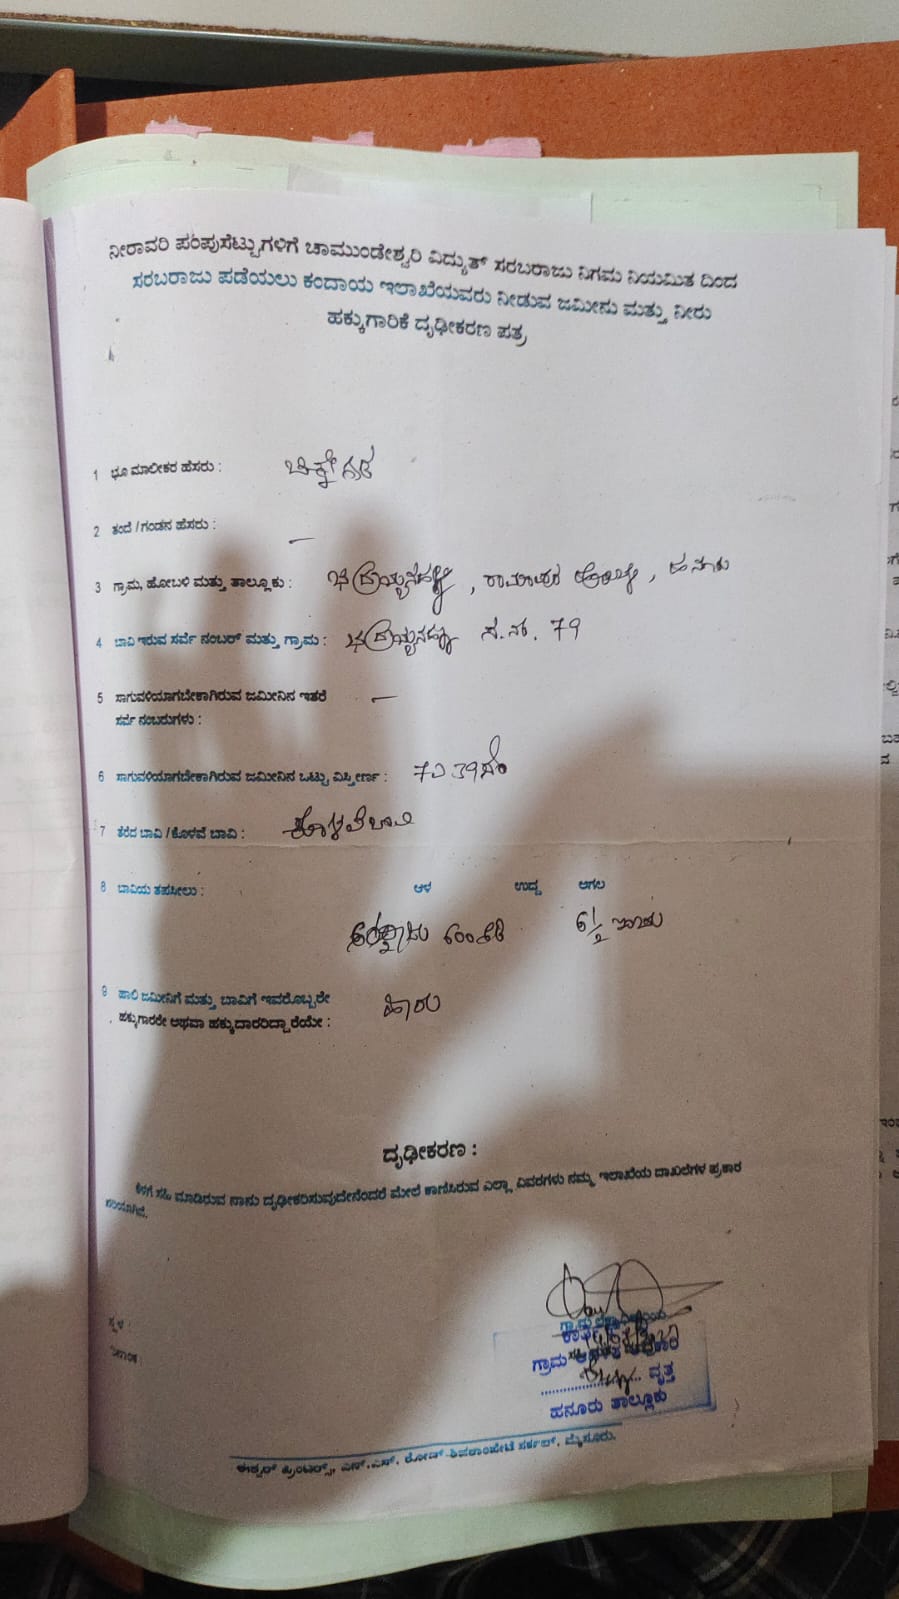 ನೀರಾವರಿ ಪಂಪುಸೆಟ್ಟುಗಳಿಗೆ ಚಾಮುಂಡೇಶ್ವರಿ ವಿದ್ಯುತ್ ಸರಬರಾಜು ನಿಗಮ ನಿಯಮಿತ ದಿಂದ
ಸರಬರಾಜು ಪಡೆಯಲು ಕಂದಾಯ ಇಲಾಖೆಯವರು ನೀಡುವ ಜಮೀನು ಮತ್ತು ನೀರು
ಹಕ್ಕುಗಾರಿಕೆ ದೃಢೀಕರಣ ಪತ್ರ
1 ಭೂ ಮಾಲೀಕರ ಹೆಸರು :
2 ತಂದೆ / ಗಂಡನ ಹೆಸರು : –
3 ಗ್ರಾಮ, ಹೋಬಳಿ ಮತ್ತು ತಾಲ್ಲೂಕು : , ರಾಮಾಪುರ ಹೋಬಳಿ, ಹನೂರು
4 ಬಾವಿ ಇರುವ ಸರ್ವೆ ನಂಬರ್ ಮತ್ತು ಗ್ರಾಮ : ಸ.ನಂ. 79
5 ಸಾಗುವಳಿಯಾಗಬೇಕಾಗಿರುವ ಜಮೀನಿನ ಇತರೆ –
ಸರ್ವೆ ನಂಬರುಗಳು :
6 ಸಾಗುವಳಿಯಾಗಬೇಕಾಗಿರುವ ಜಮೀನಿನ ಒಟ್ಟು ವಿಸ್ತೀರ್ಣ :
7 ತೆರೆದ ಬಾವಿ / ಕೊಳವೆ ಬಾವಿ : ಕೊಳವೆಬಾವಿ
8 ಬಾವಿಯ ತಪಸೀಲು : ಆಳ ಉದ್ದ ಅಗಲ
600 ಅಡಿ 6 1/2 ಇಂಚು
9 ಹಾಲಿ ಜಮೀನಿಗೆ ಮತ್ತು ಬಾವಿಗೆ ಇವರೊಬ್ಬರೇ ಹೌದು
ಹಕ್ಕುಗಾರರೇ ಅಥವಾ ಹಕ್ಕುದಾರರಿದ್ದಾರೆಯೇ :
ದೃಢೀಕರಣ :
ಕೆಳಗೆ ಸಹಿ ಮಾಡಿರುವ ನಾನು ದೃಢೀಕರಿಸುವುದೇನೆಂದರೆ ಮೇಲೆ ಕಾಣಿಸಿರುವ ಎಲ್ಲಾ ವಿವರಗಳು ನಮ್ಮ ಇಲಾಖೆಯ ದಾಖಲೆಗಳ ಪ್ರಕಾರ
ಸರಿಯಾಗಿದೆ.
ಸ್ಥಳ :
ದಿನಾಂಕ :
ಗ್ರಾಮ
.................... ವೃತ್ತ
ಹನೂರು ತಾಲ್ಲೂಕು
ಈಶ್ವರ್ ಪ್ರಿಂಟರ್ಸ್, ಎನ್.ಎಸ್. ರೋಡ್-ಶಿವರಾಂಪೇಟೆ ಸರ್ಕಲ್, ಮೈಸೂರು.